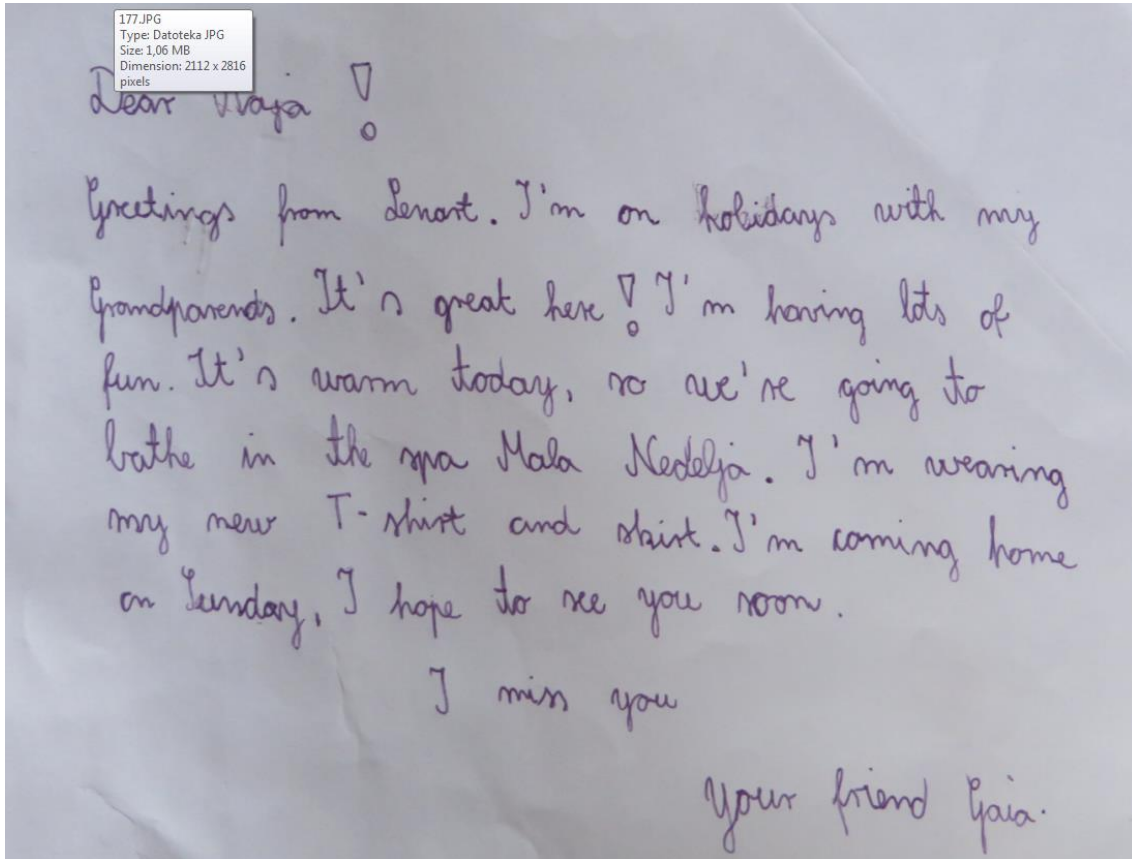 177.JPG
Type: Datoteka JPG
Size: 1,06 MB
Dimension: 2112 x 2816
pixels
Dear !
Greetings from Lenart. I'm on holidays with my
Grandparends. It's great here! I'm having lots of
fun. It's warm today, so we're going to
bathe in the spa Mala Nedelja. I'm wearing
my new T-shirt and skirt. I'm coming home
on Sunday, I hope to see you soon.
I miss you
Your friend Gaia.